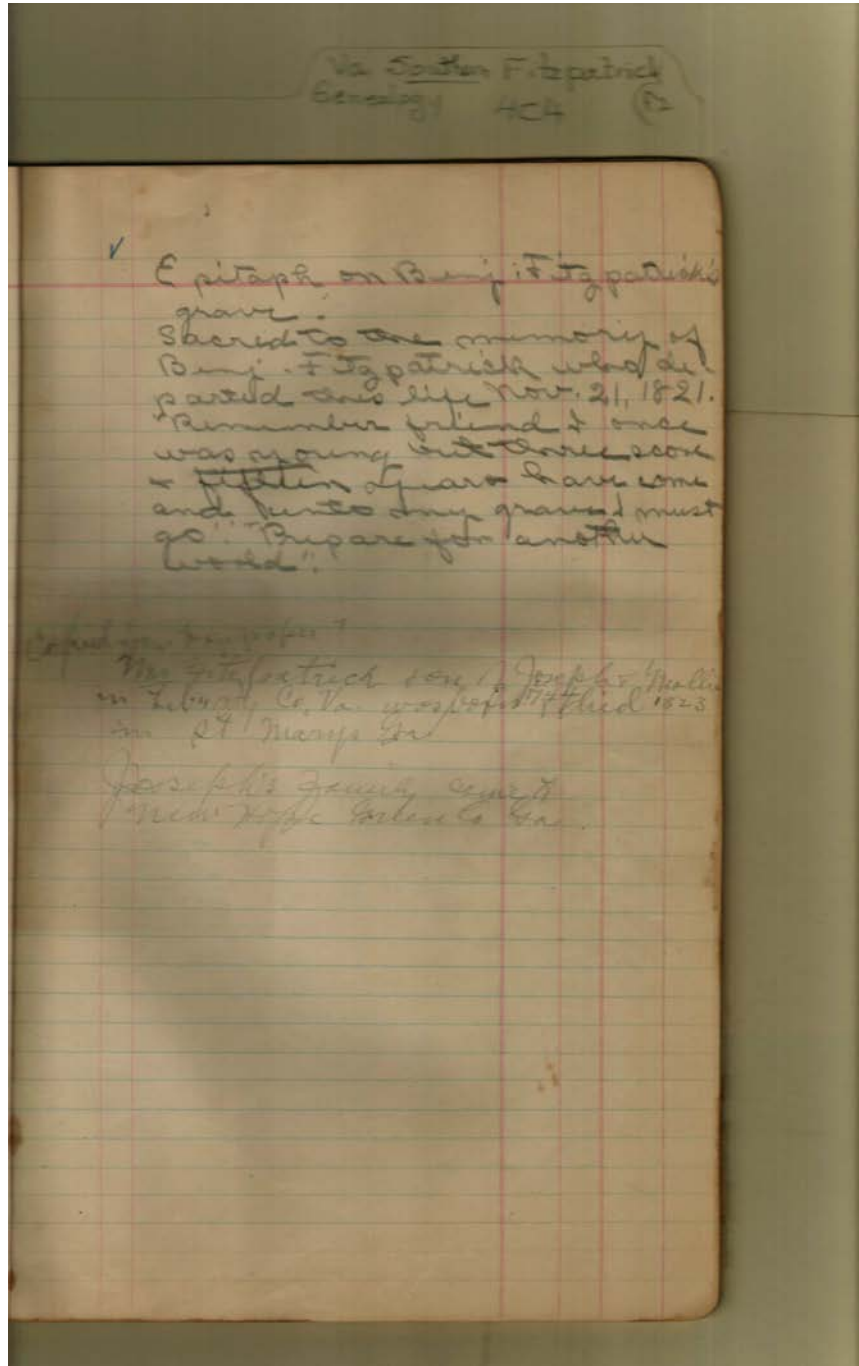 Va Southern Fitzpatrick
Genealogy 4C4
✓
Epitaph on Benj. Fitzpatrick's
grave.
Sacred to the memory of
Benj. Fitzpatrick who de-
parted this life Nov. 21, 1821.
"Remember friend I once
was young but three score
& fifteen years have come
and unto my grave I must
go". "Prepare for another
world".
Copied from
Fitzpatrick son Joseph & Mollie
in Co. Va. was born 1744 & died 1823
in St Marys Ga
Joseph's family came to
New Hope Green Co Ga.